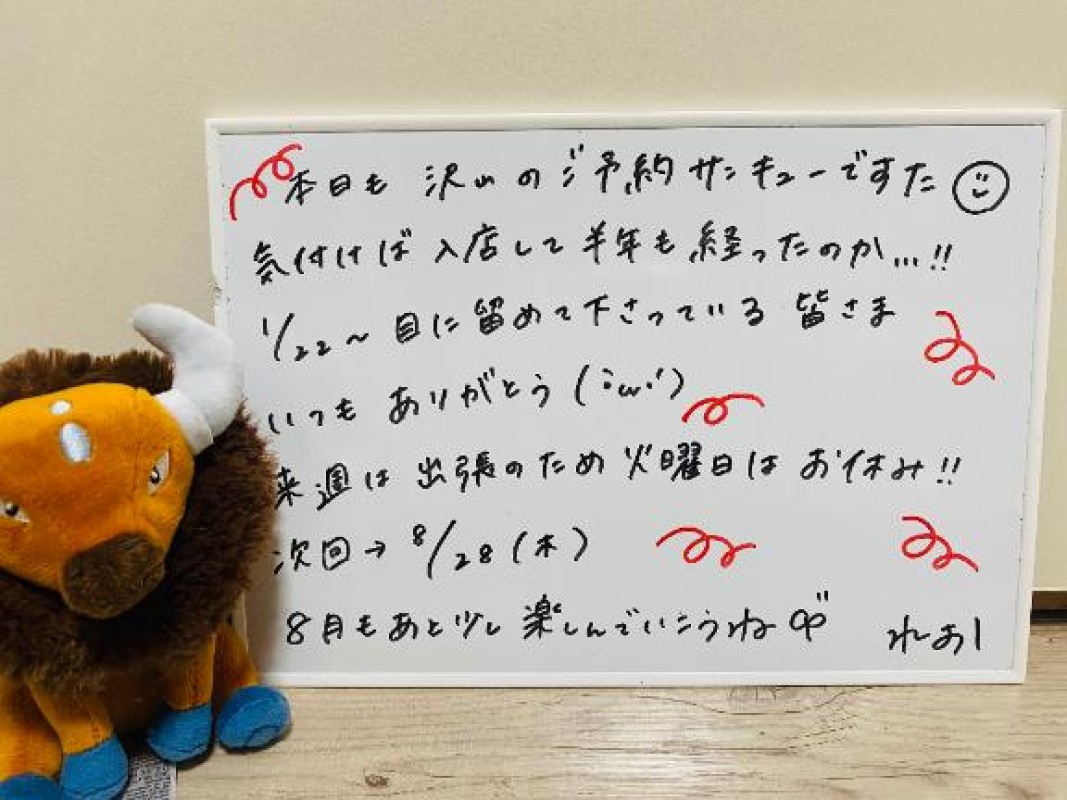 本日も 沢山のご予約サンキューですた
気付けば入店して半年も経ったのか...!!
1/22〜目に留めて下さっている 皆さま
いつも ありがとう(´ω`)
来週は 出張のため 火曜日は お休み!!
次回→ 8/28(木)
8月もあと少し 楽しんでいこうね
れあ